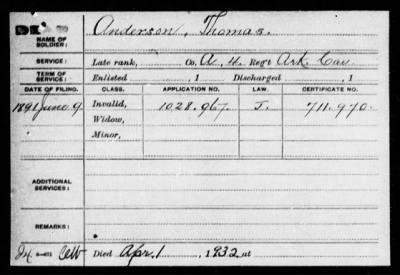 DEAD
NAME OF SOLDIER: Anderson, Thomas.
SERVICE: Late rank, Co. A, 4. Reg't Ark. Cav.
TERM OF SERVICE: Enlisted , 1 Discharged , 1
DATE OF FILING. CLASS. APPLICATION NO. LAW. CERTIFICATE NO.
1891 June 9 Invalid, 1028.967. J. 711.970.
Widow,
Minor,
ADDITIONAL SERVICES:
REMARKS:
Died Apr. 1 , 1932 at